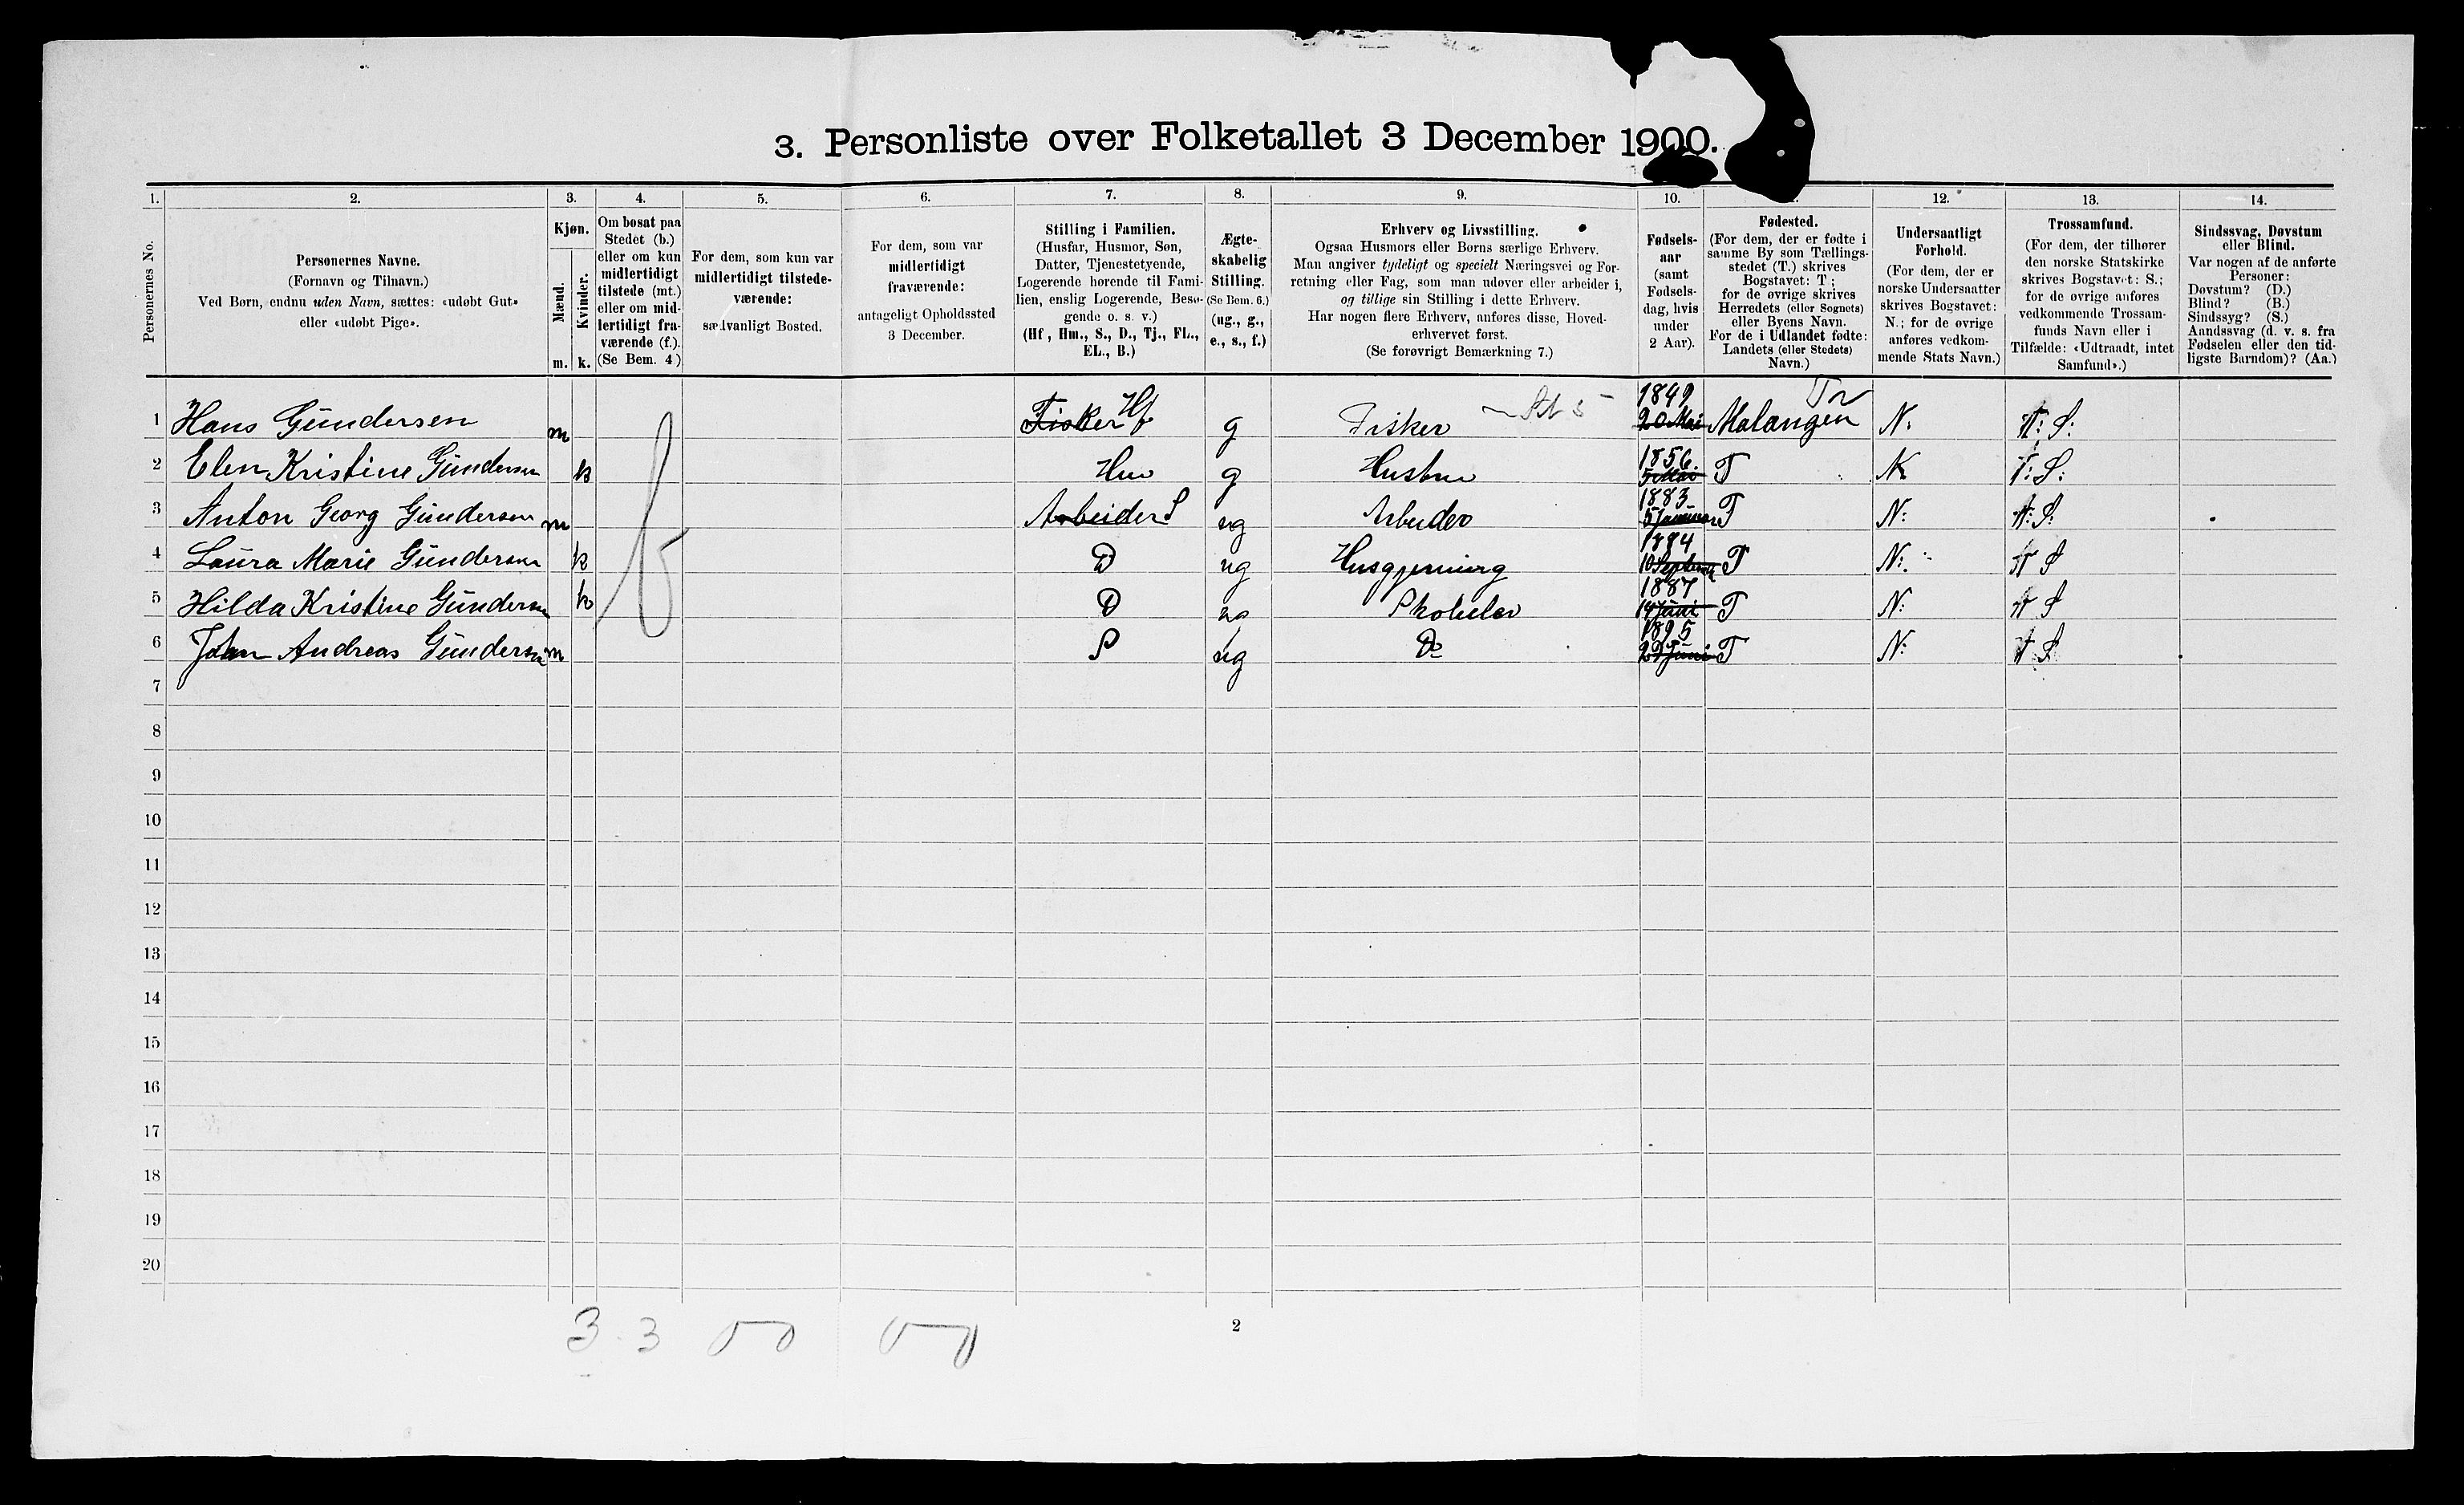 3. Personliste over Folketallet 3 December 1900.
1. 2. 3. 4. 5. 6. 7. 8. 9. 10. 12. 13. 14.
Personernes No.
Personernes Navne.
(Fornavn og Tilnavn.)
Ved Børn, endnu uden Navn, sættes: «udøbt Gut»
eller «udøbt Pige».
Kjøn.
Mænd.
Kvinder.
m. k.
Om bosat paa
Stedet (b.)
eller om kun
midlertidigt
tilstede (mt.)
eller om mid-
lertidigt fra-
værende (f.).
(Se Bem. 4)
For dem, som kun var
midlertidigt tilstede-
værende:
sædvanligt Bosted.
For dem, som var
midlertidigt
fraværende:
antageligt Opholdssted
3 December.
Stilling i Familien.
(Husfar, Husmor, Søn,
Datter, Tjenestetyende,
Logerende hørende til Fami-
lien, enslig Logerende, Besø-
gende o. s. v.)
(Hf, Hm., S., D., Tj., FL.,
EL., B.)
Ægte-
skabelig
Stilling.
(Se Bem. 6.)
(ug., g.,
e., s., f.)
Erhverv og Livsstilling.
Ogsaa Husmors eller Børns særlige Erhverv.
Man angiver tydeligt og specielt Næringsvei og For-
retning eller Fag, som man udøver eller arbeider i,
og tillige sin Stilling i dette Erhverv.
Har nogen flere Erhverv, anføres disse, Hoved-
erhvervet først.
(Se forøvrigt Bemærkning 7.)
Fødsels-
aar
(samt
Fødsels-
dag, hvis
under
2 Aar).
Fødested.
(For dem, der er fødte i
samme By som Tællings-
stedet (T.) skrives
Bogstavet: T;
for de øvrige skrives
Herredets (eller Sognets)
eller Byens Navn.
For de i Udlandet fødte:
Landets (eller Stedets)
Navn.)
Undersaatligt
Forhold.
(For dem, der er
norske Undersaatter
skrives Bogstavet:
N.; for de øvrige
anføres vedkom-
mende Stats Navn.)
Trossamfund.
(For dem, der tilhører
den norske Statskirke
skrives Bogstavet: S.;
for de øvrige anføres
vedkommende Trossam-
funds Navn eller i
Tilfælde: «Udtraadt, intet
Samfund».)
Sindssvag, Døvstum
eller Blind.
Var nogen af de anførte
Personer:
Døvstum? (D.)
Blind? (B.)
Sindssyg? (S.)
Aandssvag (d. v. s. fra
Fødselen eller den tid-
ligste Barndom)? (Aa.)
1 Hans Gundersen m Fisker Hf g Fisker 1849 20 Mai Malangen N. S:
2 Elen Kristine Gundersen k b g Hustru 1856. T N S:
3 Anton Georg Gundersen m Arbeider S ug Arbeider 1883 5 Januar T N: S:
4 Laura Marie Gundersen k D ug Husgjerning 1884 10 Septemb T N: S
5 Hilda Kristine Gundersen k D ug Skoleelev 1887 14 Juni T N: S
6 John Andreas Gundersen m S ug Do 1895 Juni T N: S
7
8
9
10
11
12
13
14
15
16
17
18
19
20
3 3
2